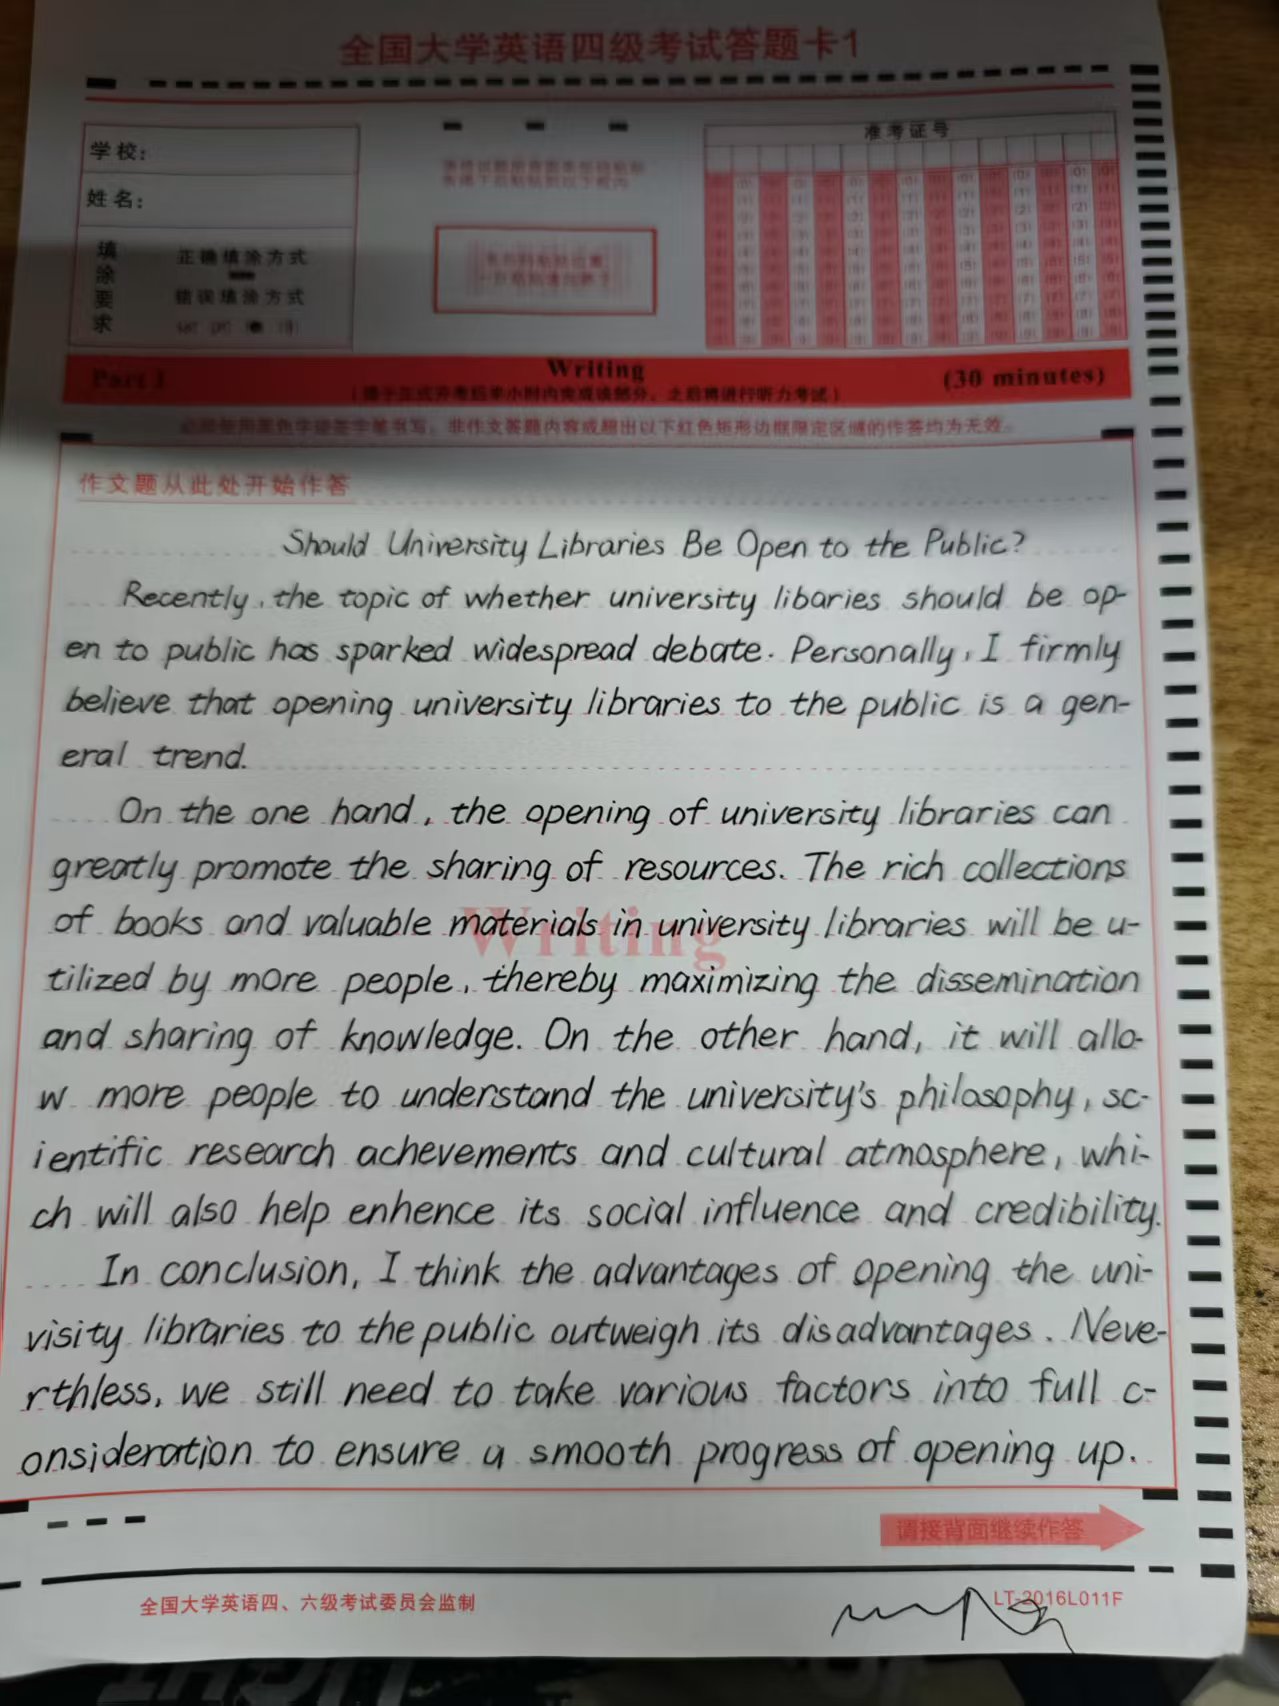 全国大学英语四级考试答题卡1
学校：
准考证号
姓名：
填涂要求
正确填涂方式
错误填涂方式
Part I
Writing
(30 minutes)
作文题从此处开始作答
Should University Libraries Be Open to the Public?
Recently, the topic of whether university libaries should be op-
en to public has sparked widespread debate. Personally, I firmly
believe that opening university libraries to the public is a gen-
eral trend.
On the one hand, the opening of university libraries can
greatly promote the sharing of resources. The rich collections
of books and valuable materials in university libraries will be u-
Writing
tilized by more people, thereby maximizing the dissemination
and sharing of knowledge. On the other hand, it will allo-
w more people to understand the university's philosophy, sc-
ientific research achevements and cultural atmosphere, whi-
ch will also help enhence its social influence and credibility.
In conclusion, I think the advantages of opening the uni-
visity libraries to the public outweigh its disadvantages. Neve-
rthless, we still need to take various factors into full c-
onsideration to ensure a smooth progress of opening up.
请接背面继续作答
全国大学英语四、六级考试委员会监制
LT-2016L011F